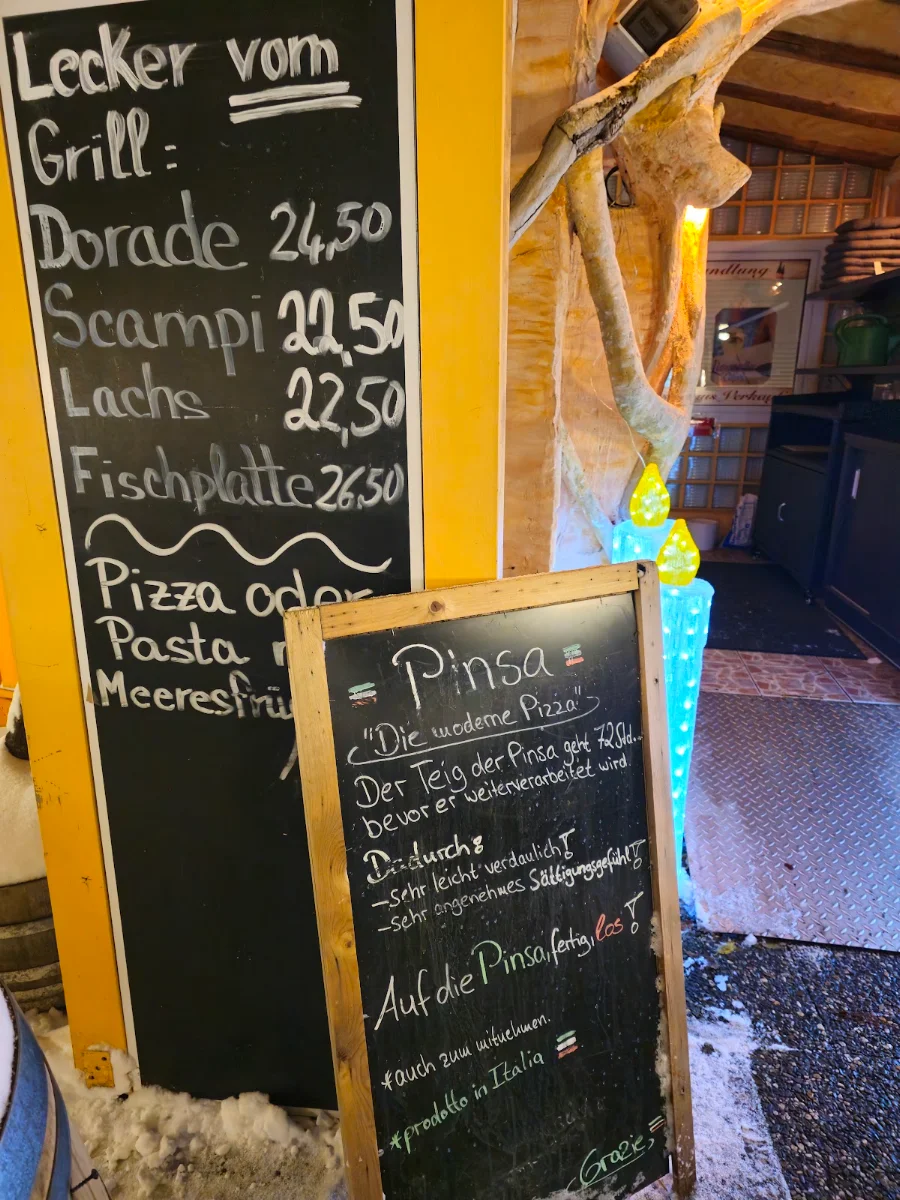 Lecker vom
Grill:
Dorade 24,50
Scampi 22,50
Lachs 22,50
Fischplatte 26,50
Pizza oder
Pasta
Meeresfrü
Pinsa
"Die moderne Pizza"
Der Teig der Pinsa geht 72 Std..
bevor er weiterverarbeitet wird.
Dadurch:
-sehr leicht verdaulich!
-sehr angenehmes Sättigungsgefühl!
Auf die Pinsa, fertig, los!
*auch zum mitnehmen.
*prodotto in Italia
Grazie
ndlung
Verkau